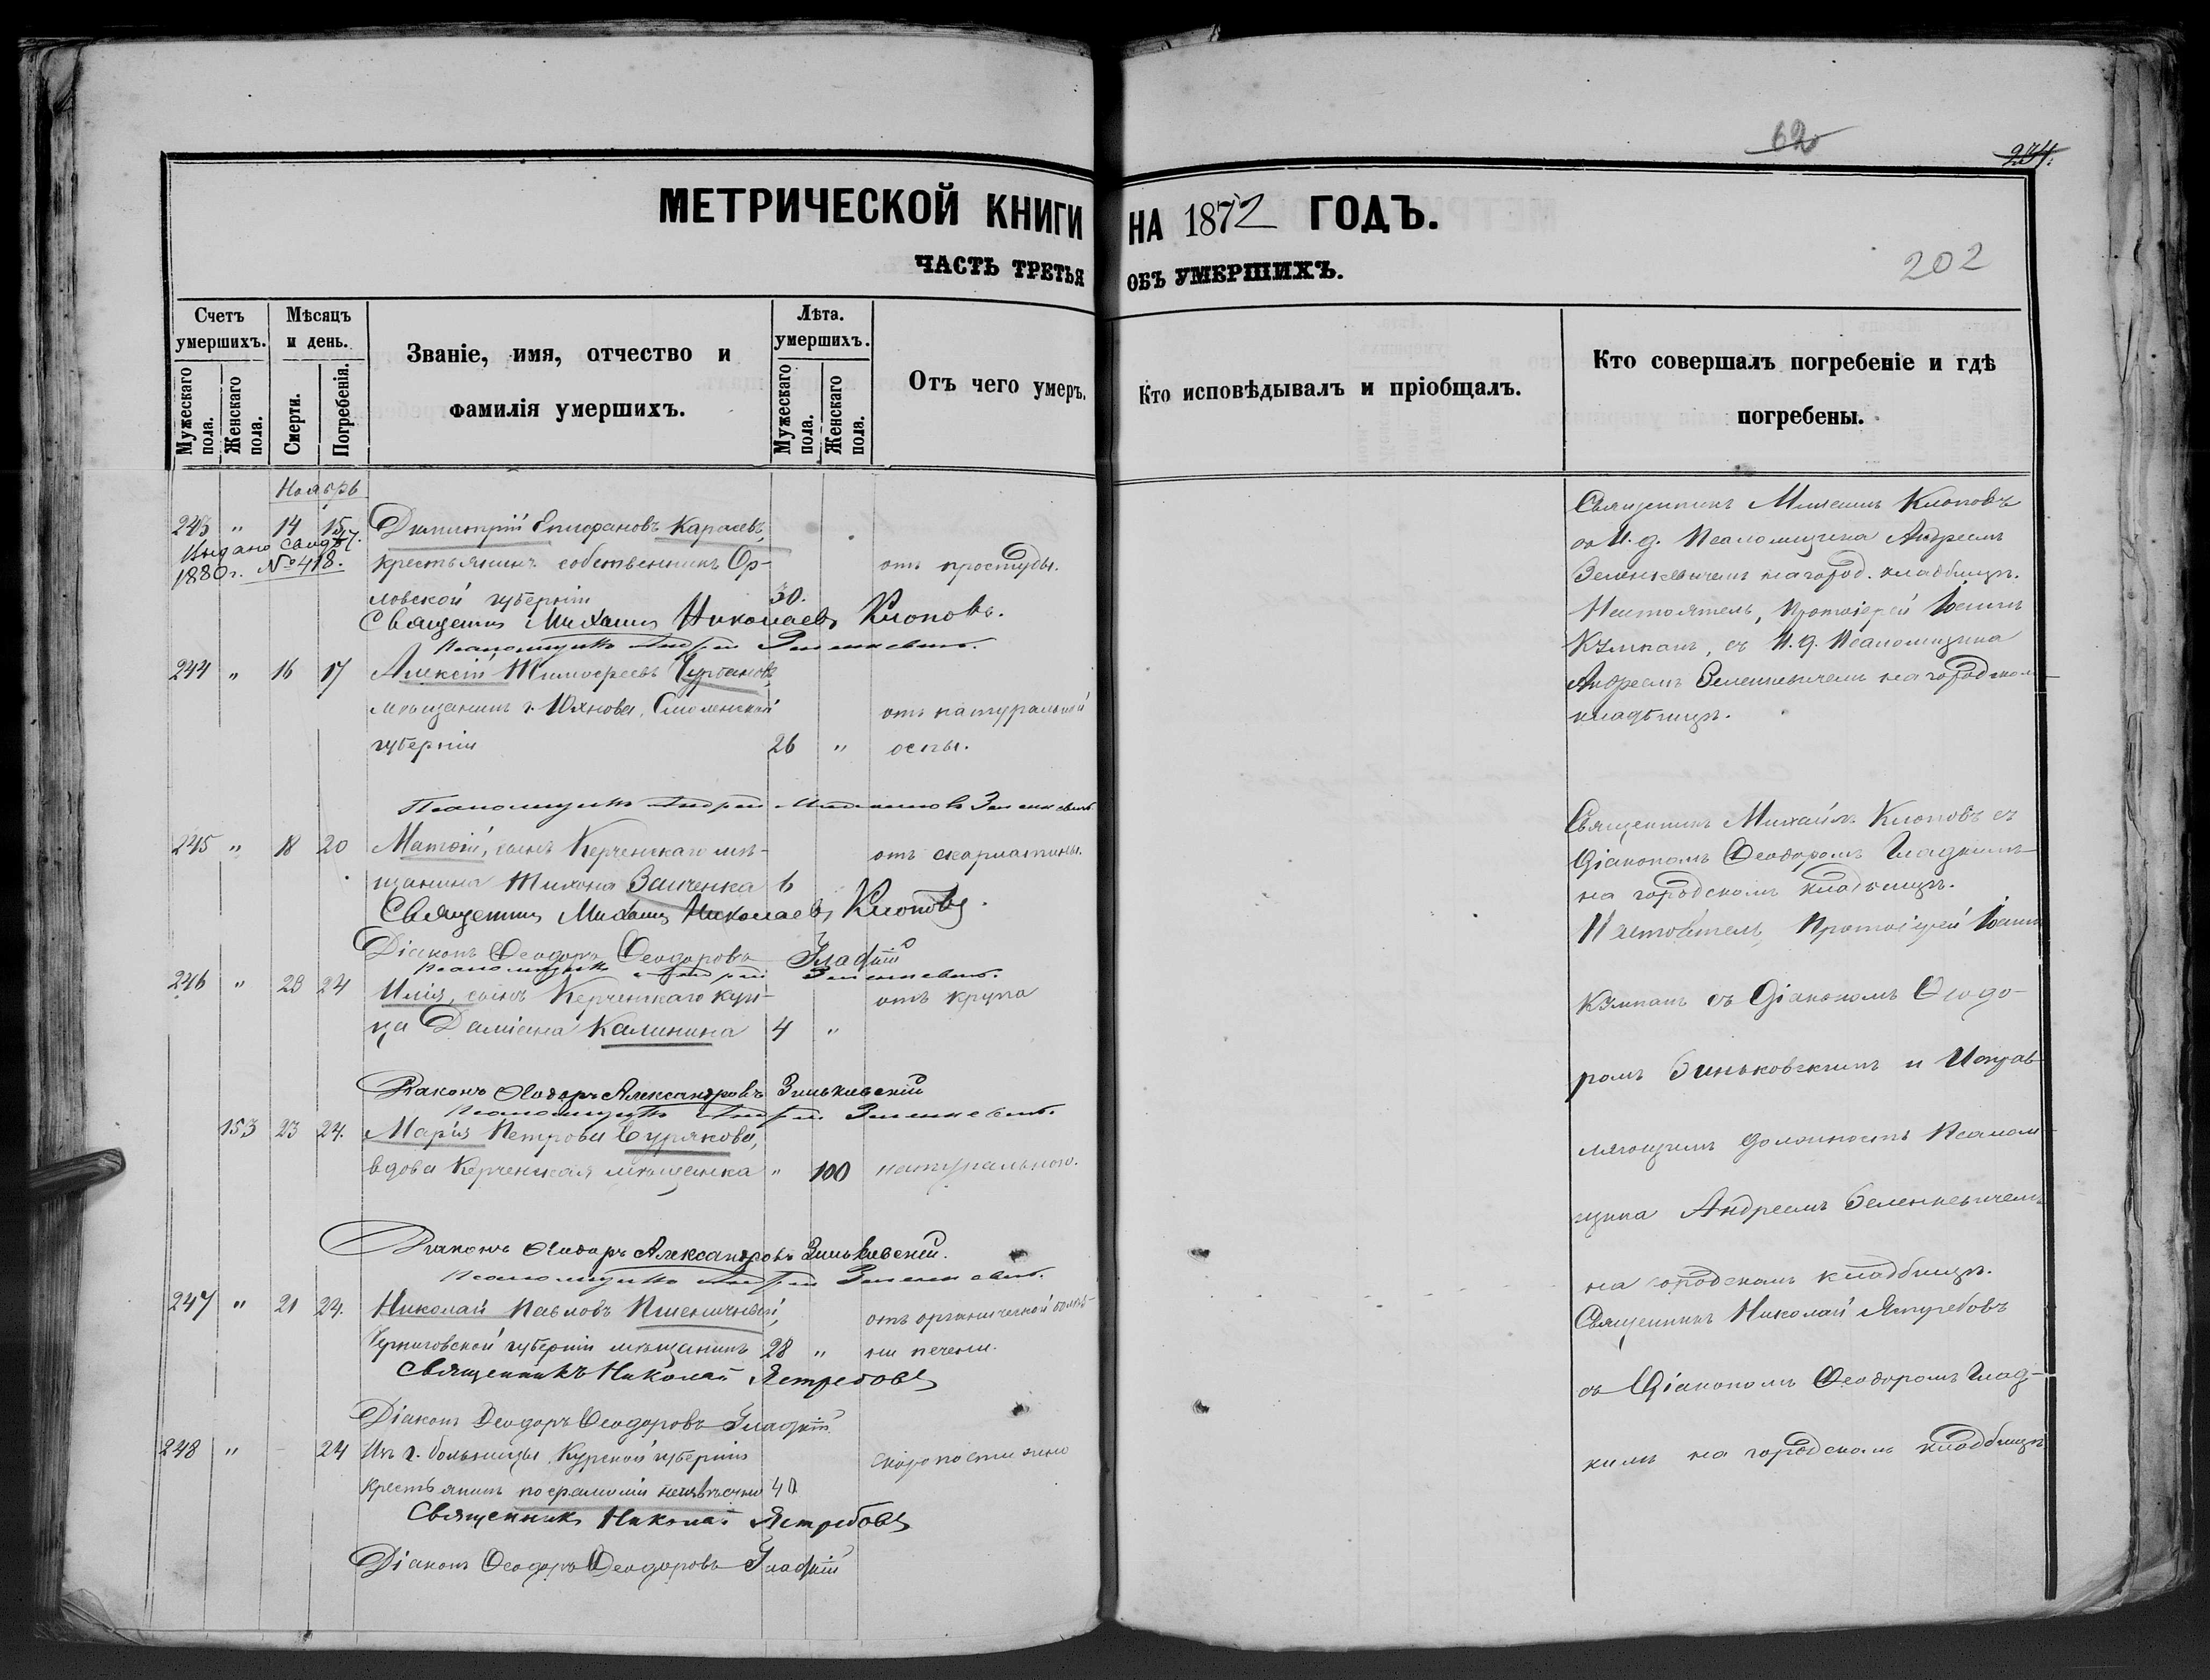 62
274.
МЕТРИЧЕСКОЙ КНИГИ НА 1872 ГОДЪ.
ЧАСТЬ ТРЕТЬЯ ОБЪ УМЕРШИХЪ.
202
Счетъ умершихъ.
Мужескаго пола.
Женскаго пола.
Мѣсяцъ и день.
Смерти.
Погребенія.
Званіе, имя, отчество и
фамилія умершихъ.
Лѣта. умершихъ.
Мужескаго пола.
Женскаго пола.
Отъ чего умеръ.
Кто исповѣдывалъ и пріобщалъ.
Кто совершалъ погребеніе и гдѣ
погребены.
Ноябрь
243 " 14 15 Димитрій Епифановъ Карасевъ,
Выдано свид.
1880 г. № 418.
крестьянинъ собственникъ Ор- отъ простуды.
ловской губерніи 30.
Священник Михаил Николаев Клопов.
Псаломщикъ Андрей Зеленкевич.
244 " 16 17 Алексій Тимофеевъ Курбановъ,
мѣщанинъ г. Юхнова, Смоленской отъ натуральной
губерніи 26 " оспы.
Псаломщикъ Андрей Зеленкевич
245 " 18 20 Матфій, сынъ Керченскаго мѣ- отъ скарлатины.
щанина Тихона Заиченка 6
Священник Михаил Николаев Клопов.
Діаконъ Феодоръ Феодоровъ Гладкій
Псаломщикъ Андрей Зеленкевич.
246 " 23 24 Илія, сынъ Керченскаго куп- отъ крупа
ца Даміана Калинина 4 "
Діаконъ Феодоръ Александровъ Зиньковскій
Псаломщикъ Андрей Зеленкевич.
153 23 24. Марія Петрова Бурякова,
вдова Керченская мѣщанка " 100 натурально.
Діаконъ Феодоръ Александровъ Зиньковскій.
Псаломщикъ Андрей Зеленкевич.
247 " 21 24. Николай Павловъ Пшеничный, отъ органической болѣз-
Черниговской губерніи мѣщанинъ 28 " ни печени.
Священникъ Николай Ястребовъ
Діаконъ Феодоръ Феодоровъ Гладкій
248 " 24 Изъ г. больницы, Курской губерніи скоропостижно
крестьянинъ по фамиліи неизвѣстно 40
Священникъ Николай Ястребовъ
Діаконъ Феодоръ Феодоровъ Гладкій
Священникъ Михаилъ Клоповъ
съ И. д. Псаломщика Андреемъ
Зеленкевичемъ на город. кладбищѣ.
Настоятель, Протоіерей Іоаннъ
Кумпанъ, съ И. д. Псаломщика
Андреемъ Зеленкевичемъ на городском
кладбищѣ.
Священникъ Михаилъ Клоповъ съ
Діакономъ Феодоромъ Гладкимъ
на городскомъ кладбищѣ.
Настоятель, Протоіерей Іоаннъ
Кумпанъ съ Діакономъ Феодо-
ромъ Зиньковскимъ и Исправ-
ляющимъ должность Псалом-
щика Андреемъ Зеленкевичемъ
на городскомъ кладбищѣ.
Священникъ Николай Ястребовъ
съ Діакономъ Феодоромъ Глад-
кимъ на городскомъ кладбищѣ